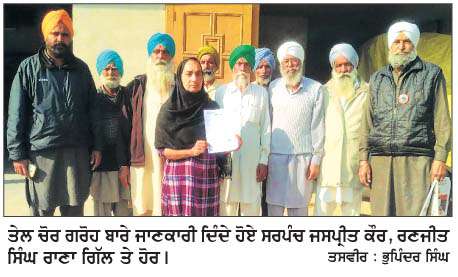 ਤੇਲ ਚੋਰ ਗਰੋਹ ਬਾਰੇ ਜਾਣਕਾਰੀ ਦਿੰਦੇ ਹੋਏ ਸਰਪੰਚ ਜਸਪ੍ਰੀਤ ਕੌਰ, ਰਣਜੀਤ
ਸਿੰਘ ਰਾਣਾ ਗਿੱਲ ਤੇ ਹੋਰ। ਤਸਵੀਰ : ਭੁਪਿੰਦਰ ਸਿੰਘ